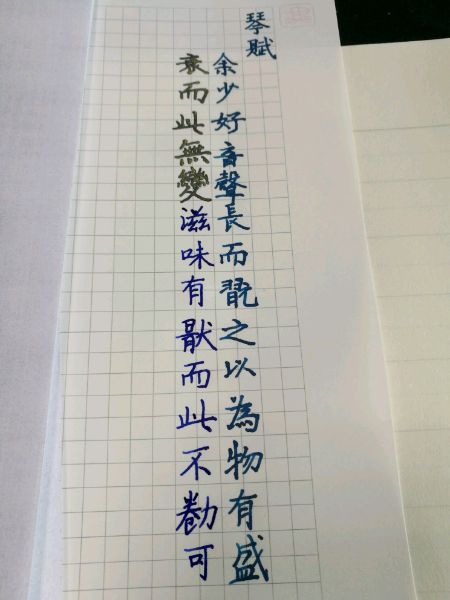 琴賦
余少好音聲長而翫之以為物有盛
衰而此無變滋味有猒而此不勌可